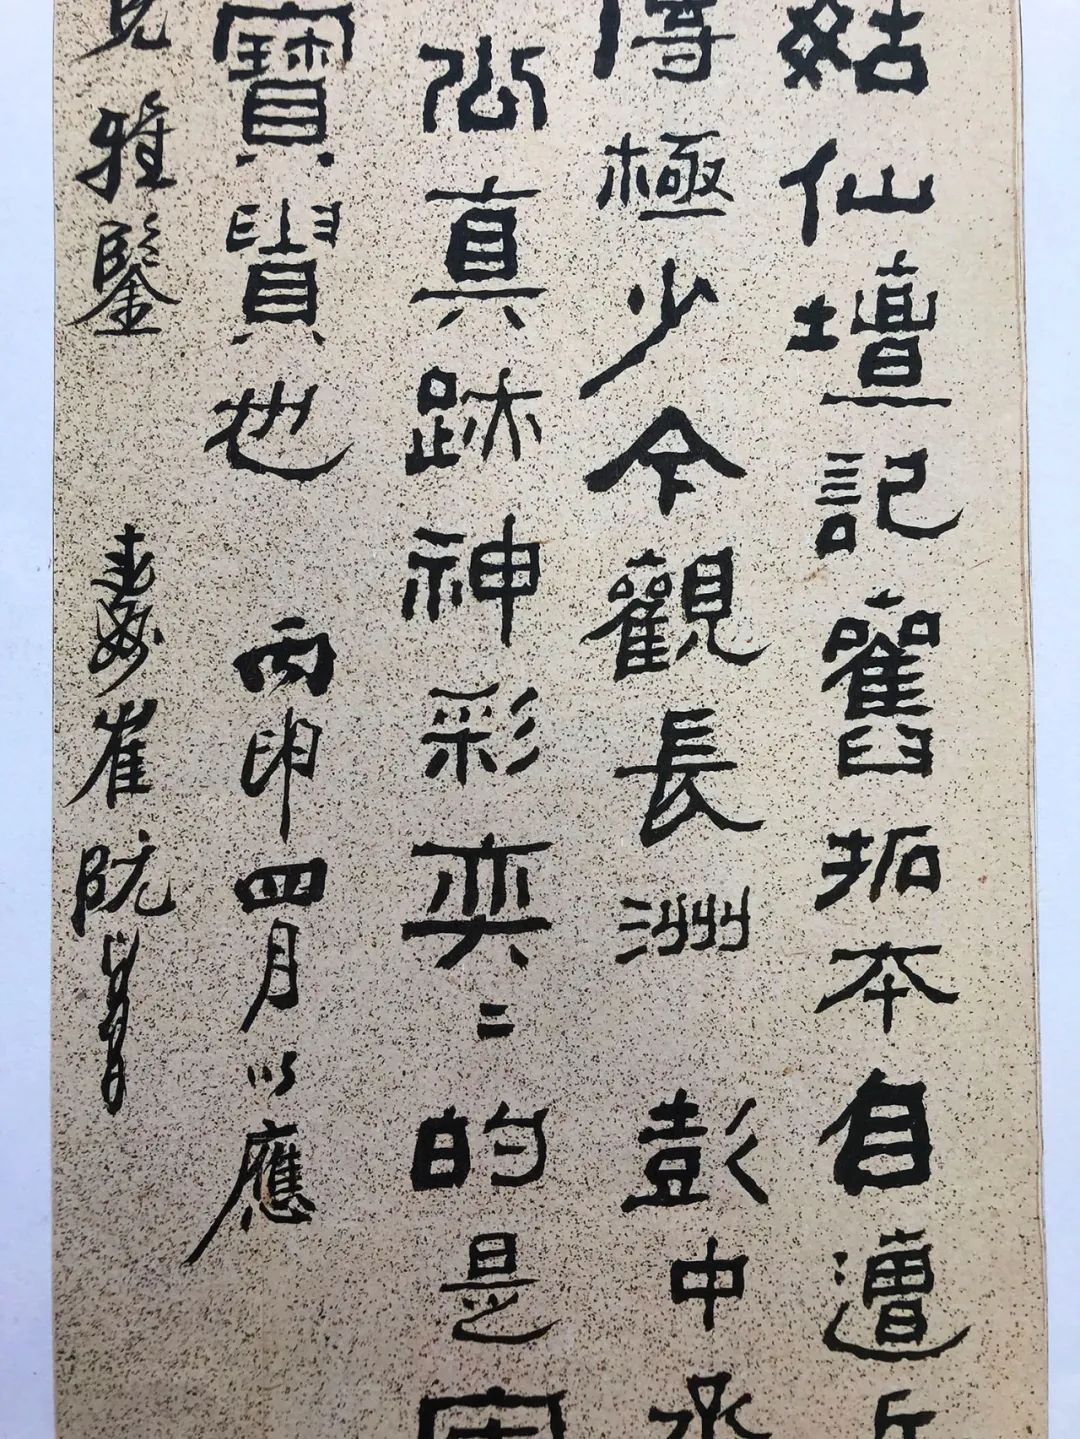 姑仙壇記舊拓本自遭兵
傳極少今觀長洲 彭中丞
公真跡神彩奕奕的是宋
寶貝也 丙申四月以應
兄雅鑒 崔阮